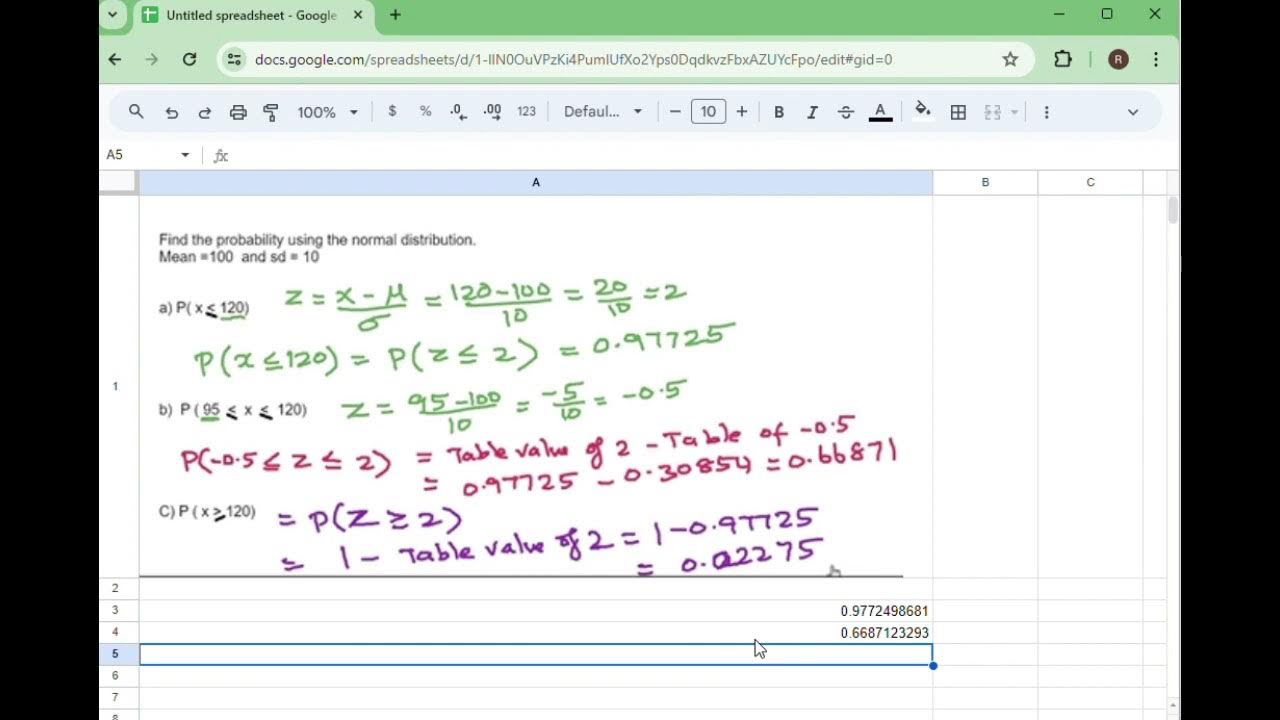 Untitled spreadsheet - Google
docs.google.com/spreadsheets/d/1-IIN0OuVPzKi4PumIUfXo2Yps0DqdkvzFbxAZUYcFpo/edit#gid=0
R
100% $ % .0 .00 123 Defaul... − 10 + B I A
A5 fx
A B C
1
Find the probability using the normal distribution.
Mean =100 and sd = 10
a) P( x ≤ 120) z = x - μ / σ = 120 - 100 / 10 = 20 / 10 = 2
P(x ≤ 120) = P(z ≤ 2) = 0.97725
b) P ( 95 ≤ x ≤ 120) z = 95 - 100 / 10 = -5 / 10 = -0.5
P(-0.5 ≤ z ≤ 2) = Table value of 2 - Table of -0.5
= 0.97725 - 0.30854 = 0.66871
C) P ( x ≥ 120) = P(Z ≥ 2)
= 1 - Table value of 2 = 1 - 0.97725
= 0.02275
2
3 0.9772498681
4 0.6687123293
5
6
7
8